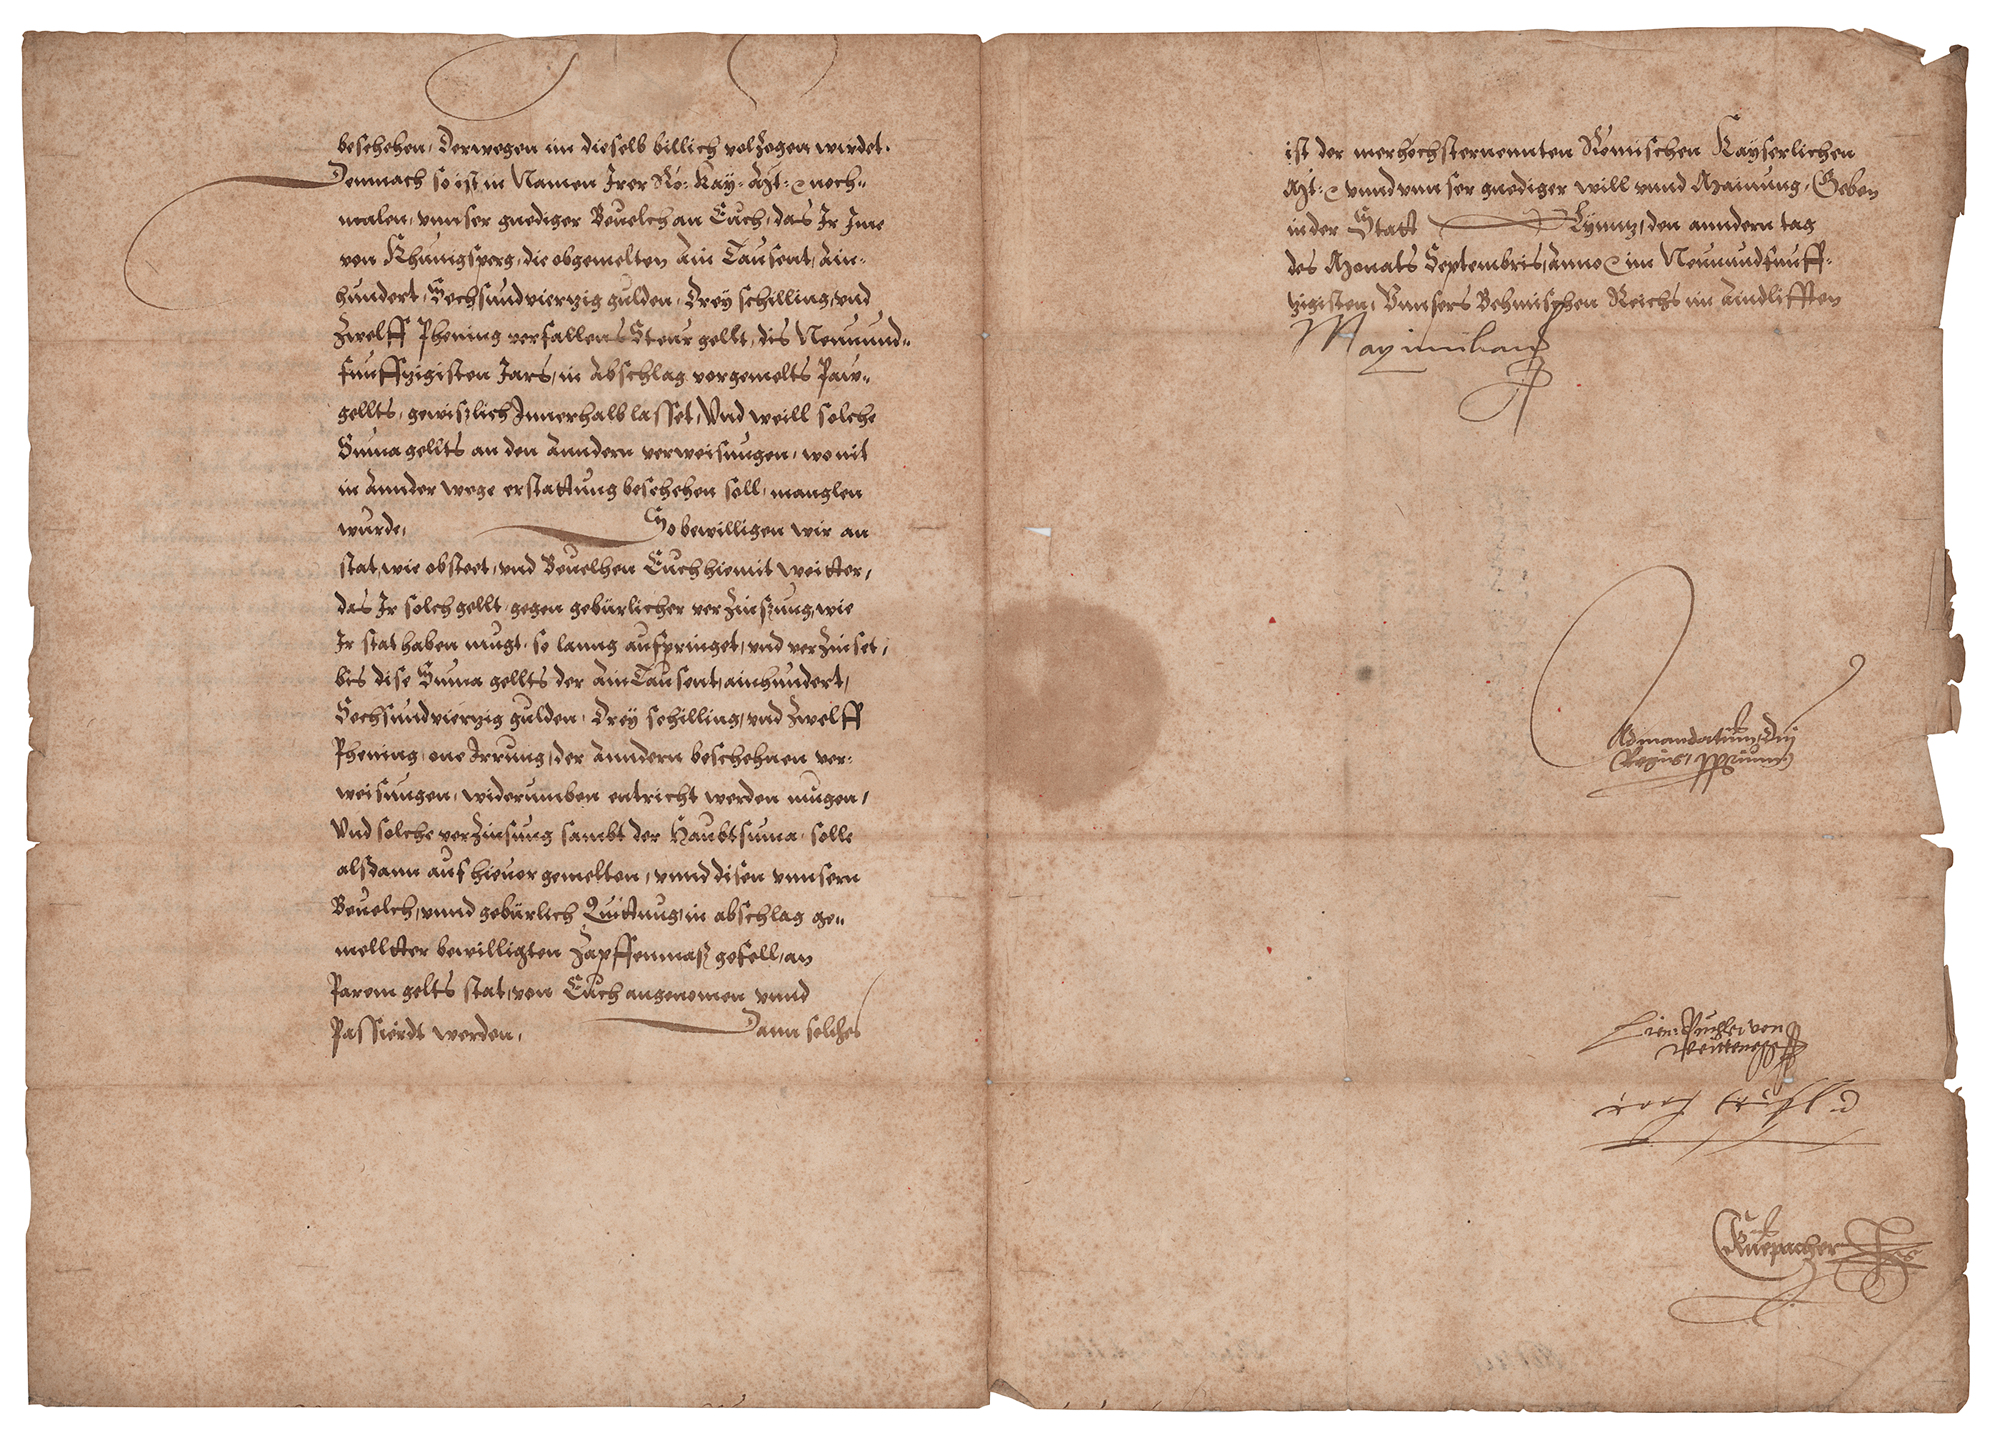 beschehen, Derwegen im dieselb billich volzogen wirdet.
Demnach so ist in Namen Irer Rö: Kay: Mt: noch=
malen, vnnser gnediger Beuelch an Euch, das Ir Ime
von Khungsperg, die obgemelten Ain Tausent, Ain=
hundert, Sechsundvierzig gulden, Drey schilling, vnd
Zwelff Phening verfallens Steur gellt, dis Neunund=
funffzigisten Jars, in Abschlag vorgemelts Paw=
gellts, gewislich Innerhalb lasset, Vnd weill solche
Suma gellts an den Anndern verweisungen, womit
in Annder wege erstattung beschehen soll, manglen
wurde, So bewilligen wir an
stat, wie obsteet, vnd Beuelhen Euch hiemit weitter,
das Ir solch gellt, gegen gebürlicher verzinsung, wie
Ir stat haben mugt, so lanng aufpringet, vnd verzinset,
bis dise Suma gellts der Ain Tausent, ainhundert,
Sechsundvierzig gulden, Drey schilling, vnd Zwelff
Phening, one Irrung, der Anndern beschehnen ver=
weisungen, widerumben entricht werden mugen,
Vnd solche verzinsung sambt der Haubtsuma, solle
alsdann auf hieuor gemelten, vnnd disen vnnsern
Beuelch, vnnd gebürlich Quittung, in abschlag ge=
mellter bewilligten Zapffenmaß gefell, an
Parem gelts stat, von Euch angenomen vnnd
Passierdt werden, Dann solches
ist der merhöchsternennten Römischen Kayserlichen
Mt: vnnd vnnser gnediger will vnnd Mainung, Geben
in der Statt Lynnz, den anndern tag
des Monats Septembris, Anno im Neunundfunff=
zigisten, Vnnsers Behmischen Reichs im Aindlifften
Maximilian
Ad mandatum Dni
Regis, pprium
von
Weittenegg
Ruepacher